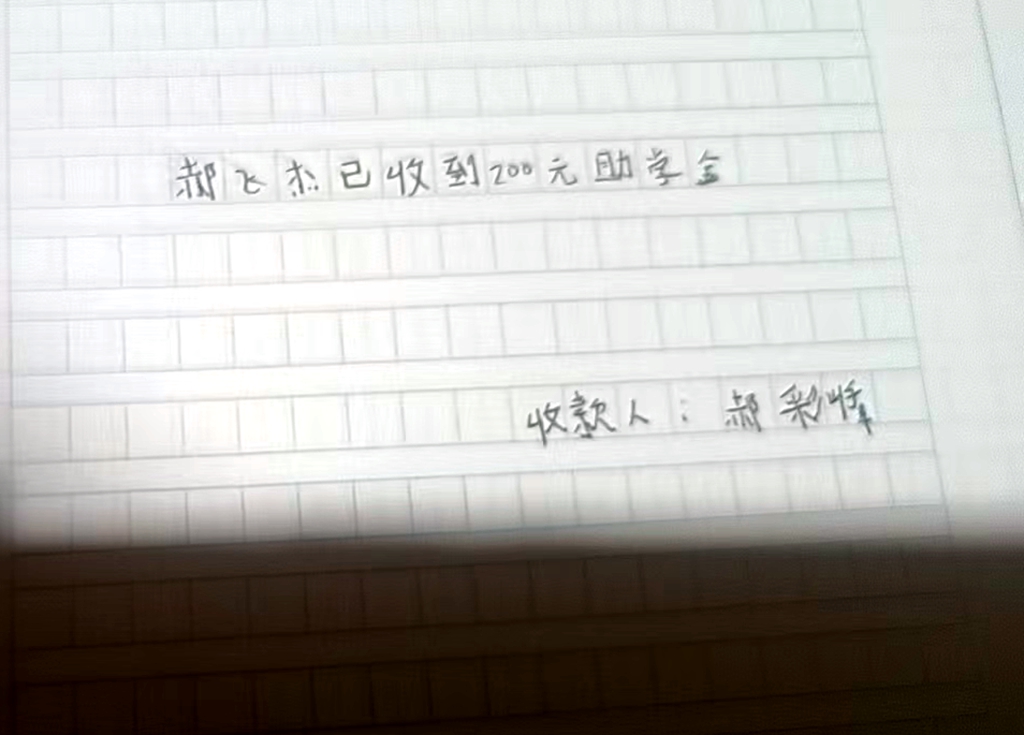 郝飞杰已收到200元助学金
收款人：郝彩